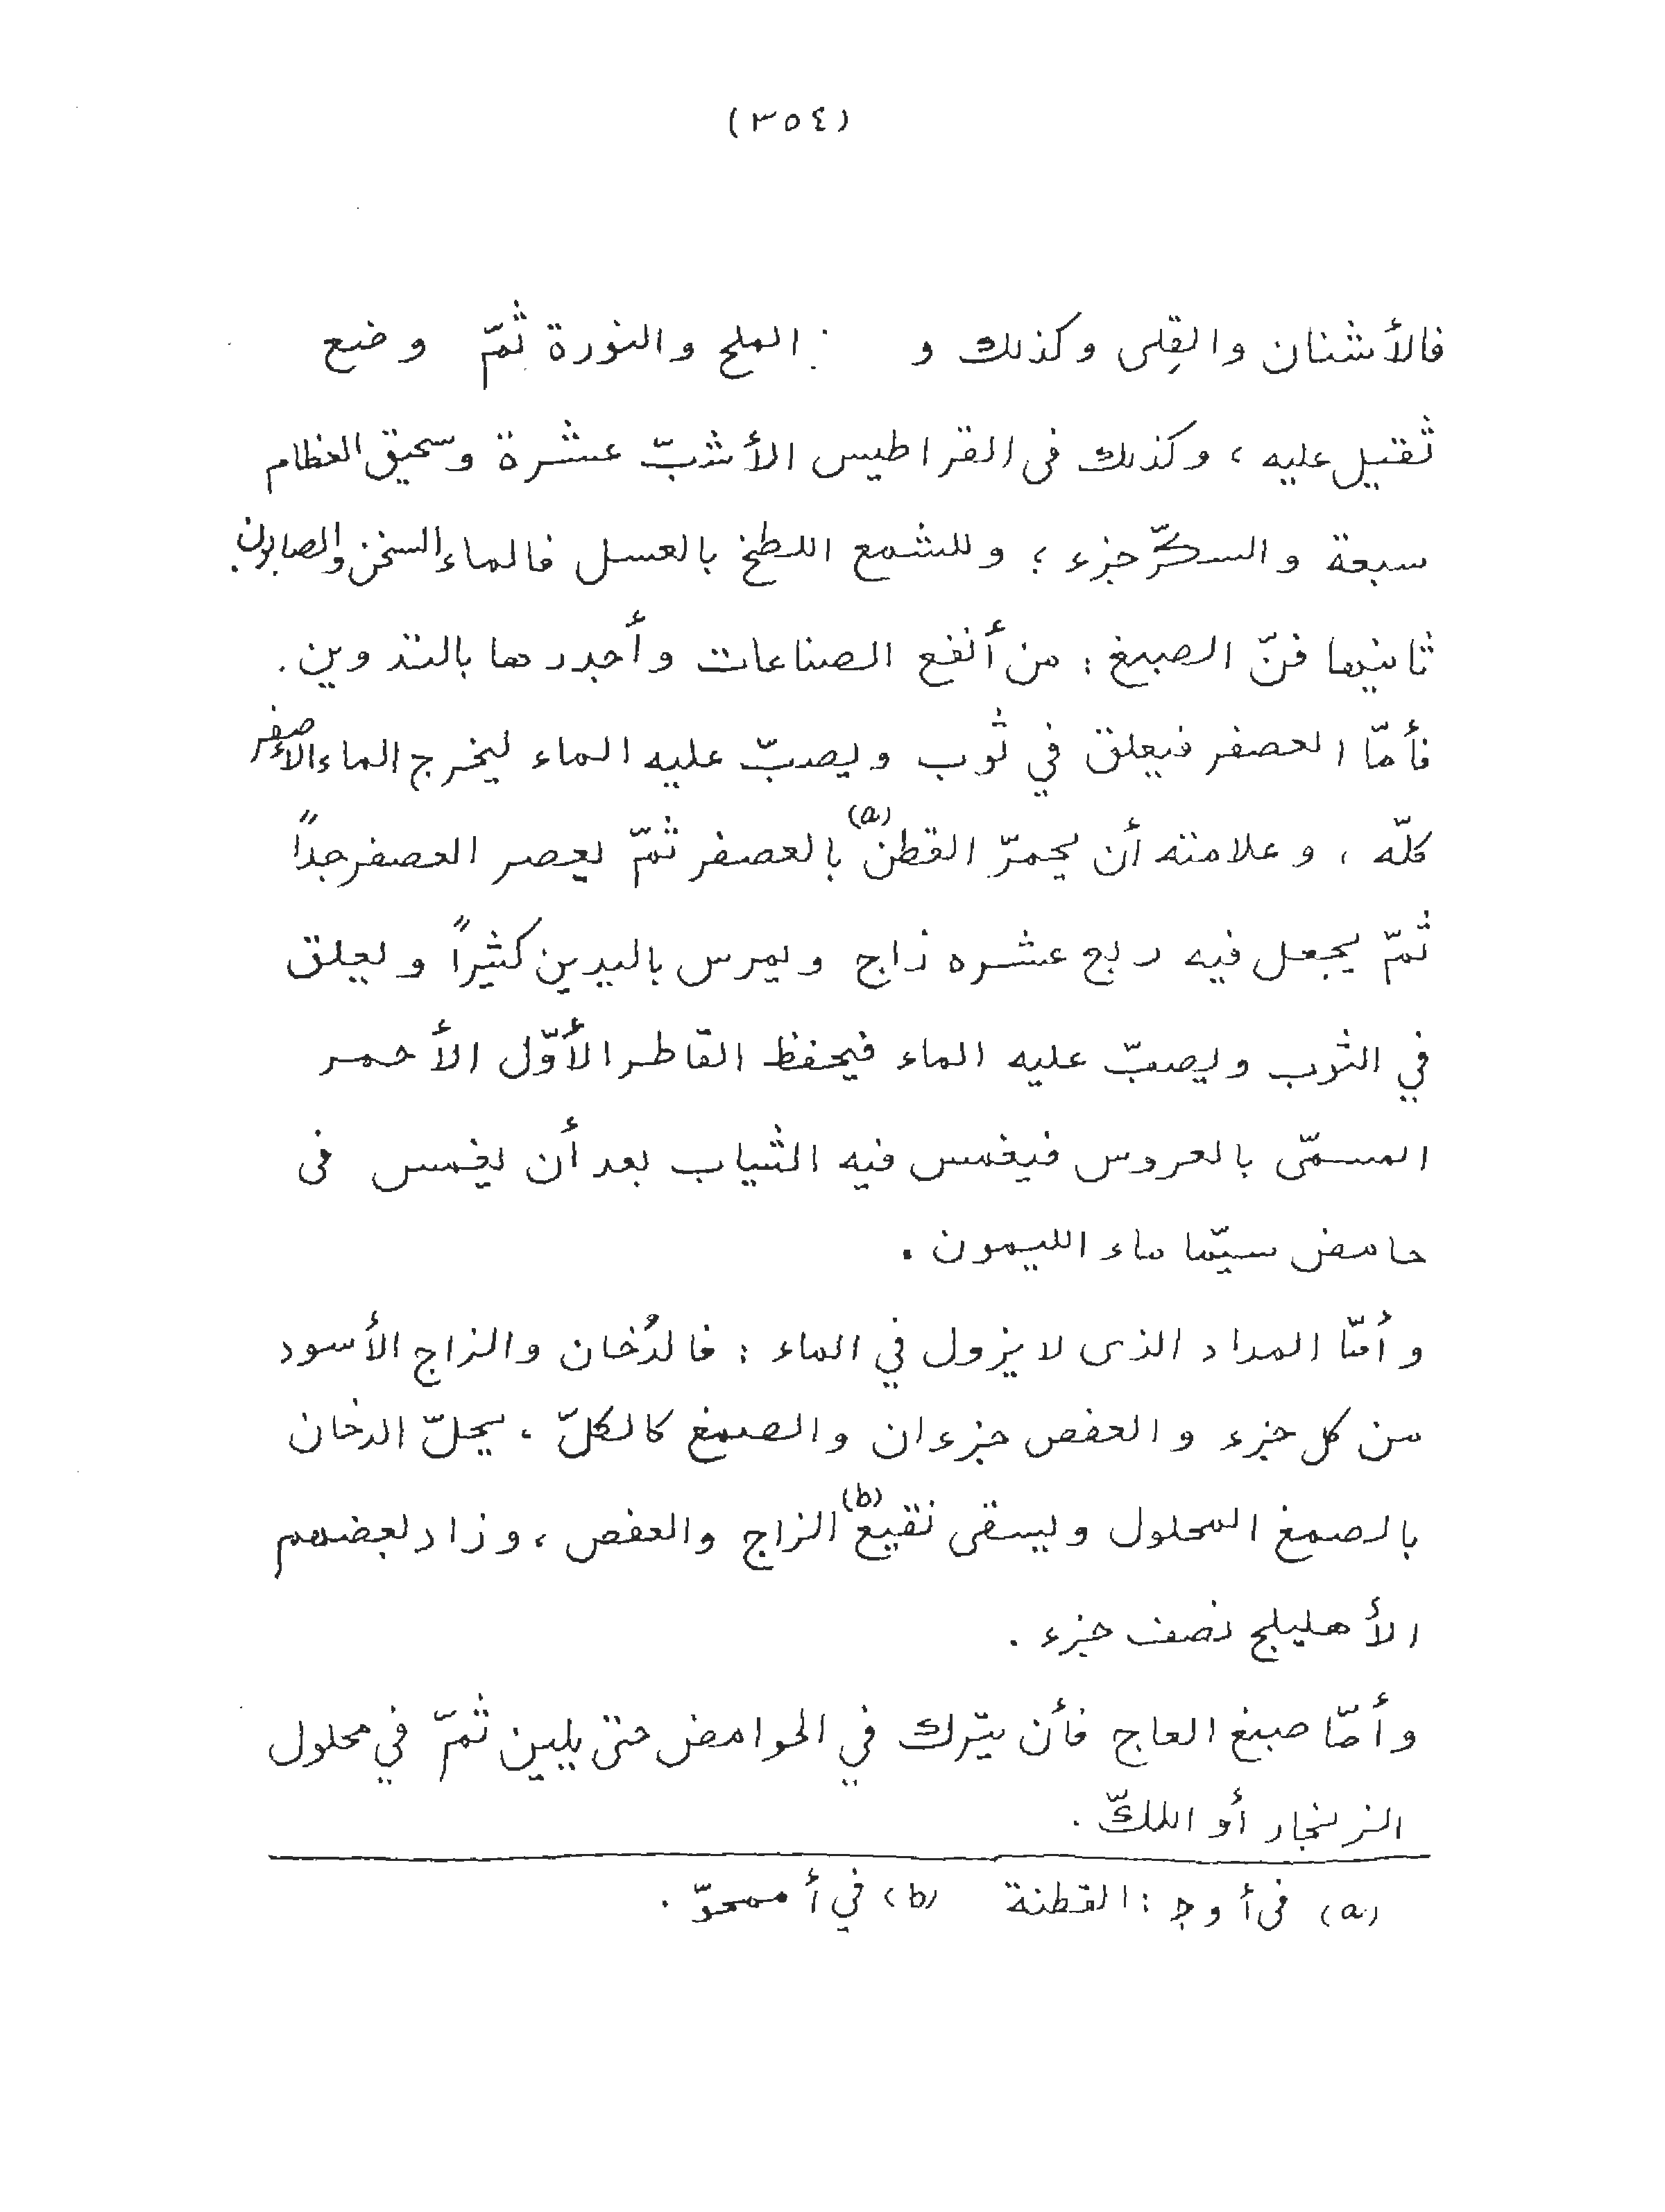 (٣٥٤)
فالأشنان والقِلى وكذلك و : الملح والنورة ثمّ وضع
ثقيل عليه ، وكذلك فى القراطيس الأشبّ عشرة وسحيق العظام
سبعة والسكّر جزء ؛ وللشمع اللطخ بالعسل فالماء السخن والصابون .
ثانيها فنّ الصبغ : من أنفع الصناعات وأجدرها بالتدوين .
فأمّا العصفر فيعلق في ثوب ويصبّ عليه الماء ليخرج الماء الأصفر
كلّه ، وعلامته أن يحمرّ القطن (a) بالعصفر ثمّ يعصر العصفر جداً
ثمّ يجعل فيه ربع عشره زاج ويمرس باليدين كثيراً ويعلق
في الثوب ويصبّ عليه الماء فيحفظ القاطر الأوّل الأحمر
المسمّى بالعروس فيغمس فيه الثياب بعد أن يغمس فى
حامض سيّما ماء الليمون .
وأمّا المداد الذى لا يزول في الماء : فالدُخان والزاج الأسود
من كل جزء والعفص جزءان والصمغ كالكلّ ، يحلّ الدخان
بالصمغ المحلول ويسقى نقيع (b) الزاج والعفص ، وزاد بعضهم
الأهليلج نصف جزء .
وأمّا صبغ العاج فأن يترك في الحوامض حتى يلين ثمّ في محلول
الزنجار أو اللكّ .
(a) فى أ وج : القطنة (b) في أ ممحوّ .